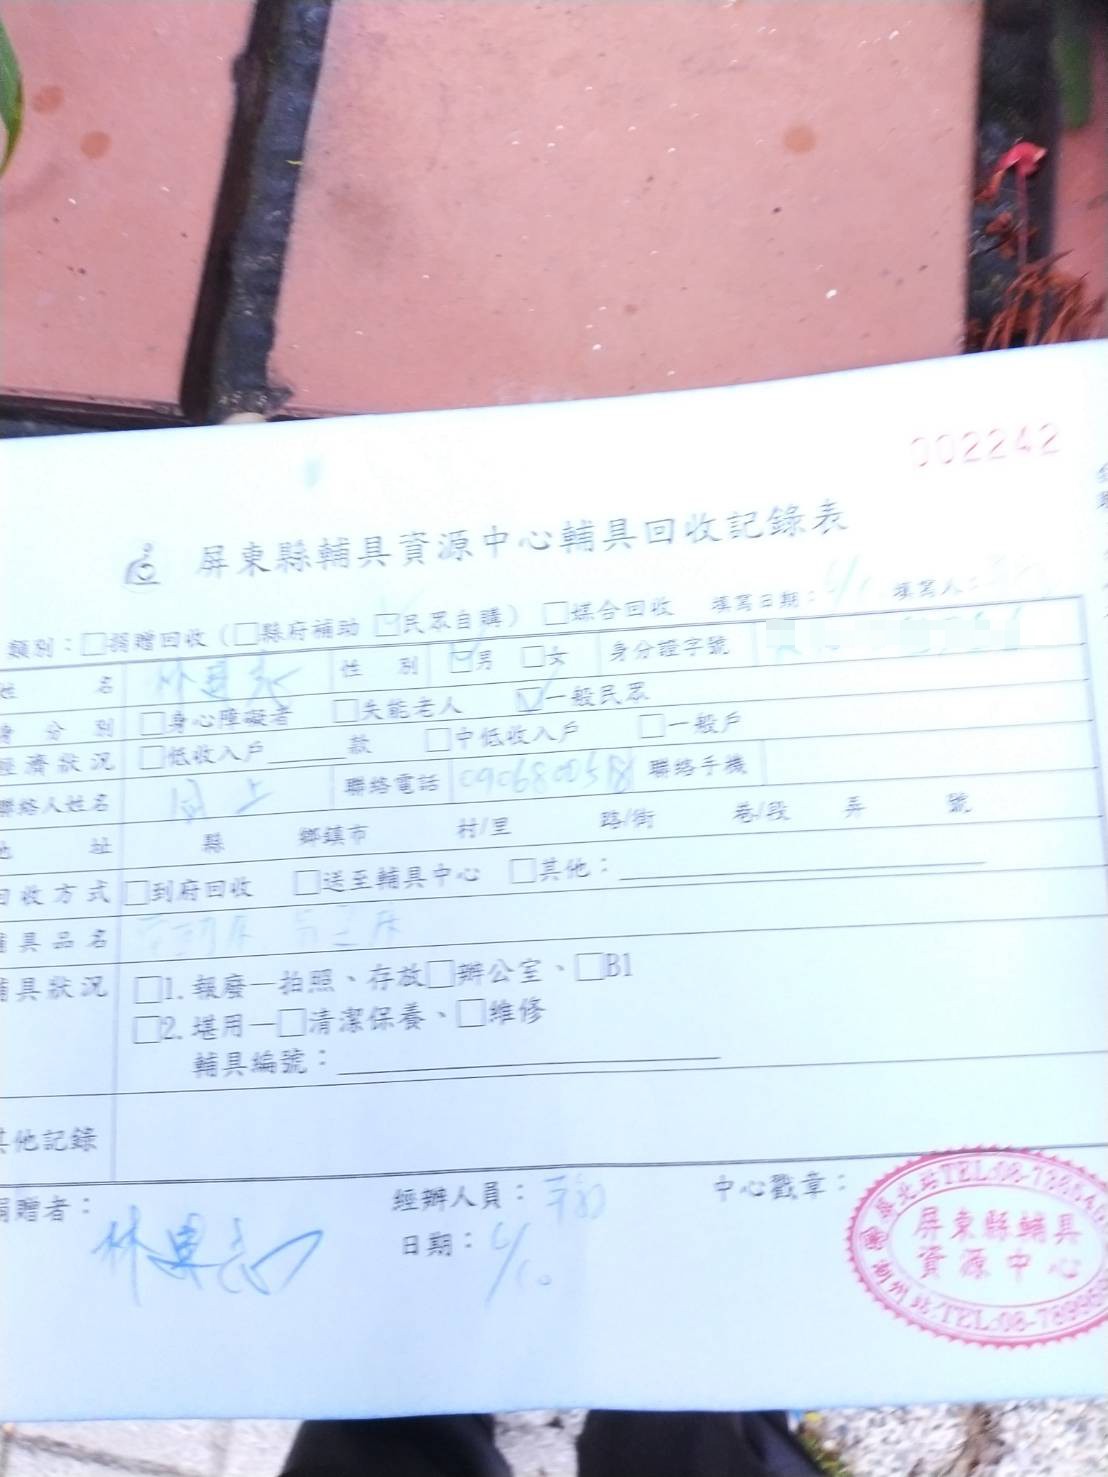 002242
屏東縣輔具資源中心輔具回收記錄表
類別：□捐贈回收（□縣府補助 ☑民眾自購） □媒合回收 填寫日期：6/10 填寫人：
姓 名 林 性 別 ☑男 □女 身分證字號
身 分 別 □身心障礙者 □失能老人 ☑一般民眾
經濟狀況 □低收入戶______款 □中低收入戶 □一般戶
聯絡人姓名 同上 聯絡電話 0906800518 聯絡手機
地 址 縣 鄉鎮市 村/里 路/街 巷/段 弄 號
回收方式 □到府回收 □送至輔具中心 □其他：
輔具品名
輔具狀況 □1. 報廢—拍照、存放□辦公室、□B1
□2. 堪用—□清潔保養、□維修
輔具編號：
其他記錄
捐贈者： 林 經辦人員： 中心戳章：
日期：6/10
屏東縣輔具
資源中心
屏北站TEL:08-7365
潮州站:TEL:08-78996